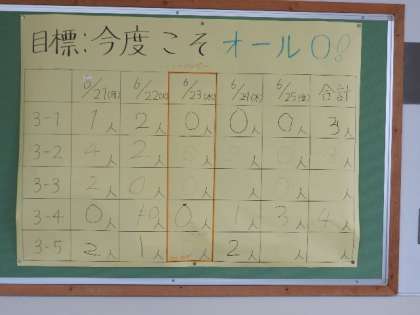 目標:今度こそオール0!!
6/21(月) 6/22(火) 6/23(水) 6/24(木) 6/25(金) 合計
3-1 1人 2人 0人 0人 0人 3人
3-2 4人 2人 人 人 人 人
3-3 2人 0人 人 人 0人 人
3-4 0人 人 0人 1人 3人 4人
3-5 2人 1人 人 2人 人 人